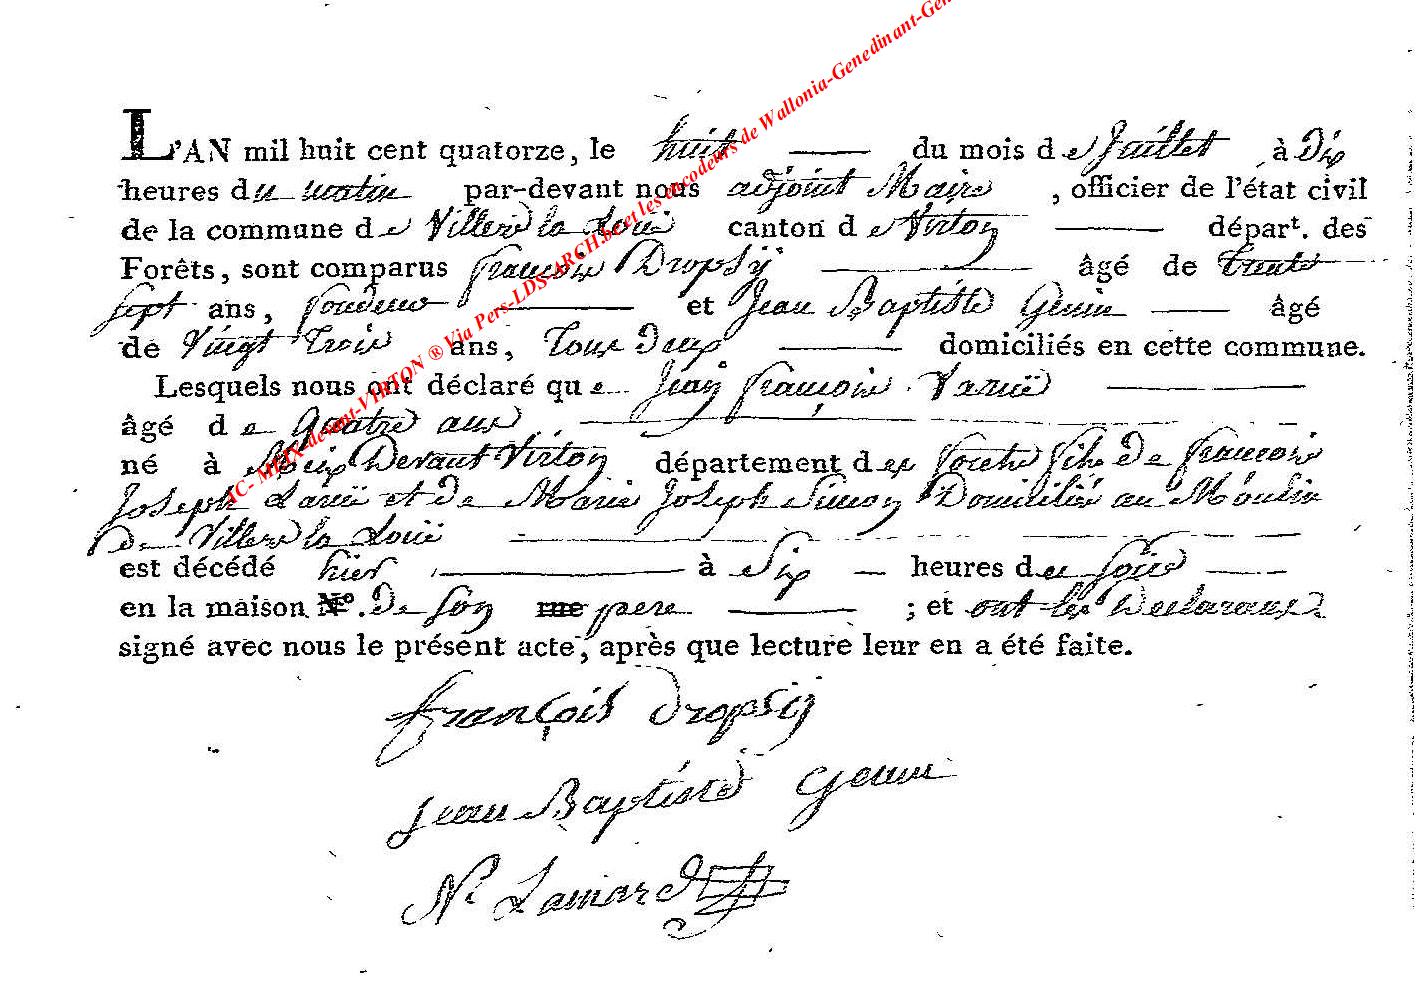 L'AN mil huit cent quatorze, le huit du mois de Juillet à Dix
heures du matin par-devant nous adjoint Maire, officier de l'état civil
de la commune de Villers la Loüe canton de Virton départ. des
Forêts, sont comparus françois Dropsÿ âgé de trente
sept ans, et Jean Baptiste Genin âgé
de Vingt Trois ans, Tous Deux domiciliés en cette commune.
Lesquels nous ont déclaré que Jean françois
âgé de Quatre ans
né à Meix Devant Virton département des forêts fils De françois
Joseph et de Marie Joseph Simon Domicilié au Moulin
De Villers la Loüe
est décédé hier à Six heures de soir
en la maison N°. De son me pere ; et ont les Declarans
signé avec nous le présent acte, après que lecture leur en a été faite.
AC- MEIX-devant-VIRTON ® Via Pers-LDS-ARCH.be et les encodeurs de Wallonia-Genedinant-Gen
françois dropsij
jean Baptiste Genin